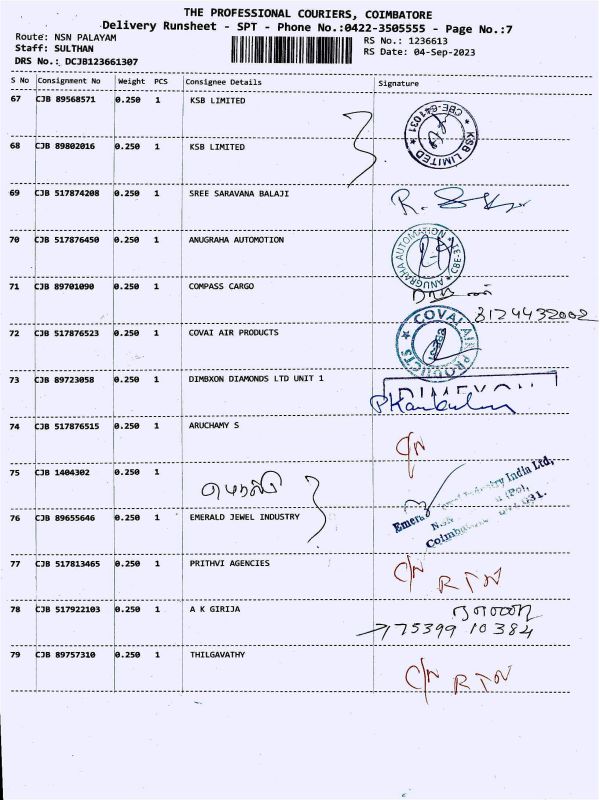 THE PROFESSIONAL COURIERS, COIMBATORE
Delivery Runsheet - SPT - Phone No.:0422-3505555 - Page No.:7
Route: NSN PALAYAM
RS No.: 1236613
Staff: SULTHAN
RS Date: 04-Sep-2023
DRS No.: DCJB123661307
S No Consignment No Weight PCS Consignee Details Signature
67 CJB 89568571 0.250 1 KSB LIMITED
KSB LIMITED CBE-641031
68 CJB 89802016 0.250 1 KSB LIMITED
69 CJB 517874208 0.250 1 SREE SARAVANA BALAJI
70 CJB 517876450 0.250 1 ANUGRAHA AUTOMOTION
ANUGRAHA AUTOMATION
71 CJB 89701090 0.250 1 COMPASS CARGO
3124432002
72 CJB 517876523 0.250 1 COVAI AIR PRODUCTS
COVAI AIR PRODUCTS
73 CJB 89723058 0.250 1 DIMBXON DIAMONDS LTD UNIT 1
DIMEXON
74 CJB 517876515 0.250 1 ARUCHAMY S
C/N
75 CJB 1404302 0.250 1
76 CJB 89655646 0.250 1 EMERALD JEWEL INDUSTRY
Industry India Ltd,
77 CJB 517813465 0.250 1 PRITHVI AGENCIES
C/N RTN
78 CJB 517922103 0.250 1 A K GIRIJA
175399 10384
79 CJB 89757310 0.250 1 THILGAVATHY
C/N RTN